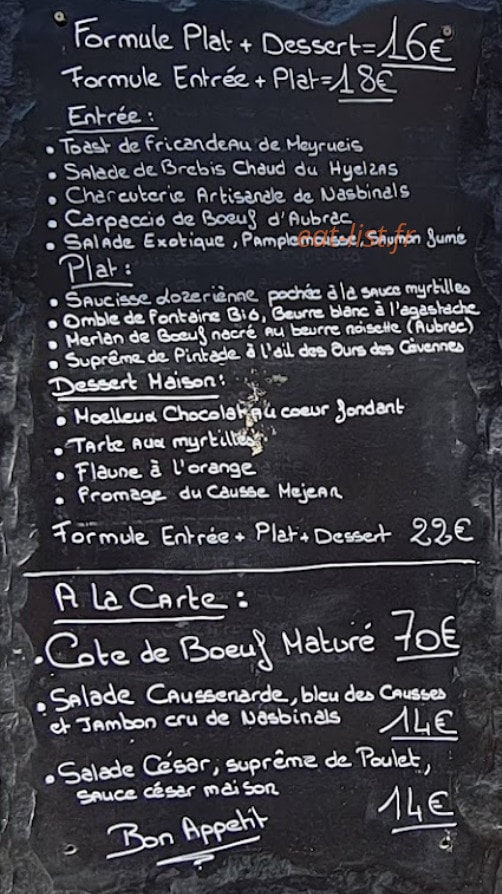 Formule Plat + Dessert = 16€
Formule Entrée + Plat = 18€
Entrée :
• Toast de fricandeau de Meyrueis
• Salade de Brebis Chaud du Hyelzas
• Charcuterie Artisanale de Nasbinals
• Carpaccio de Boeuf d'Aubrac
• Salade Exotique, Pamplemousse, Saumon fumé
eat-list.fr
Plat :
• Saucisse lozerienne pochée à la sauce myrtilles
• Omble de Fontaine Bio, Beurre blanc à l'agastache
• Merlan de Boeuf nacré au beurre noisette (Aubrac)
• Suprême de Pintade à l'ail des Ours des Cévennes
Dessert Maison :
• Moelleux Chocolat au coeur fondant
• Tarte aux myrtilles
• Flaune à l'orange
• Fromage du Causse Mejean
Formule Entrée + Plat + Dessert 22€
A la Carte :
• Cote de Boeuf Maturé 70€
• Salade Caussenarde, bleu des Causses
et Jambon cru de Nasbinals 14€
• Salade César, suprême de Poulet,
sauce césar maison 14€
Bon Appetit